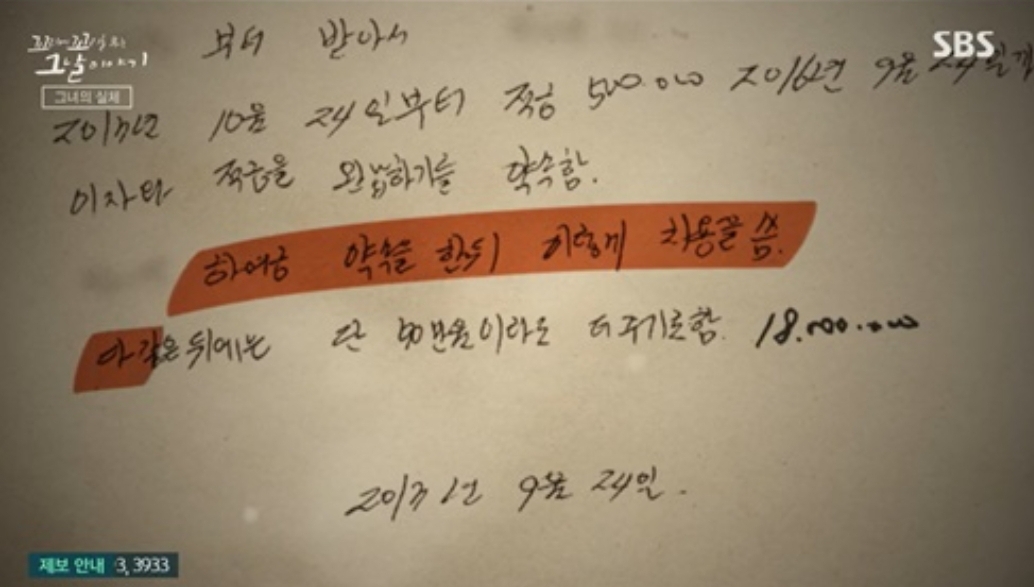 꼬리에 꼬리를 무는
그날 이야기
그녀의 실체
SBS
부터 받아서
2013년 10월 24일부터 적금 500.000 2016년 9월 24일
이자 다 적금을 완납하기를 약속함.
하여금 약속을 한뒤 이렇게 차용글 씀.
다 갚은 뒤에는 단 50만원이라도 더 주기로함. 18.000.000
2013년 9월 24일.
제보 안내 3, 3933